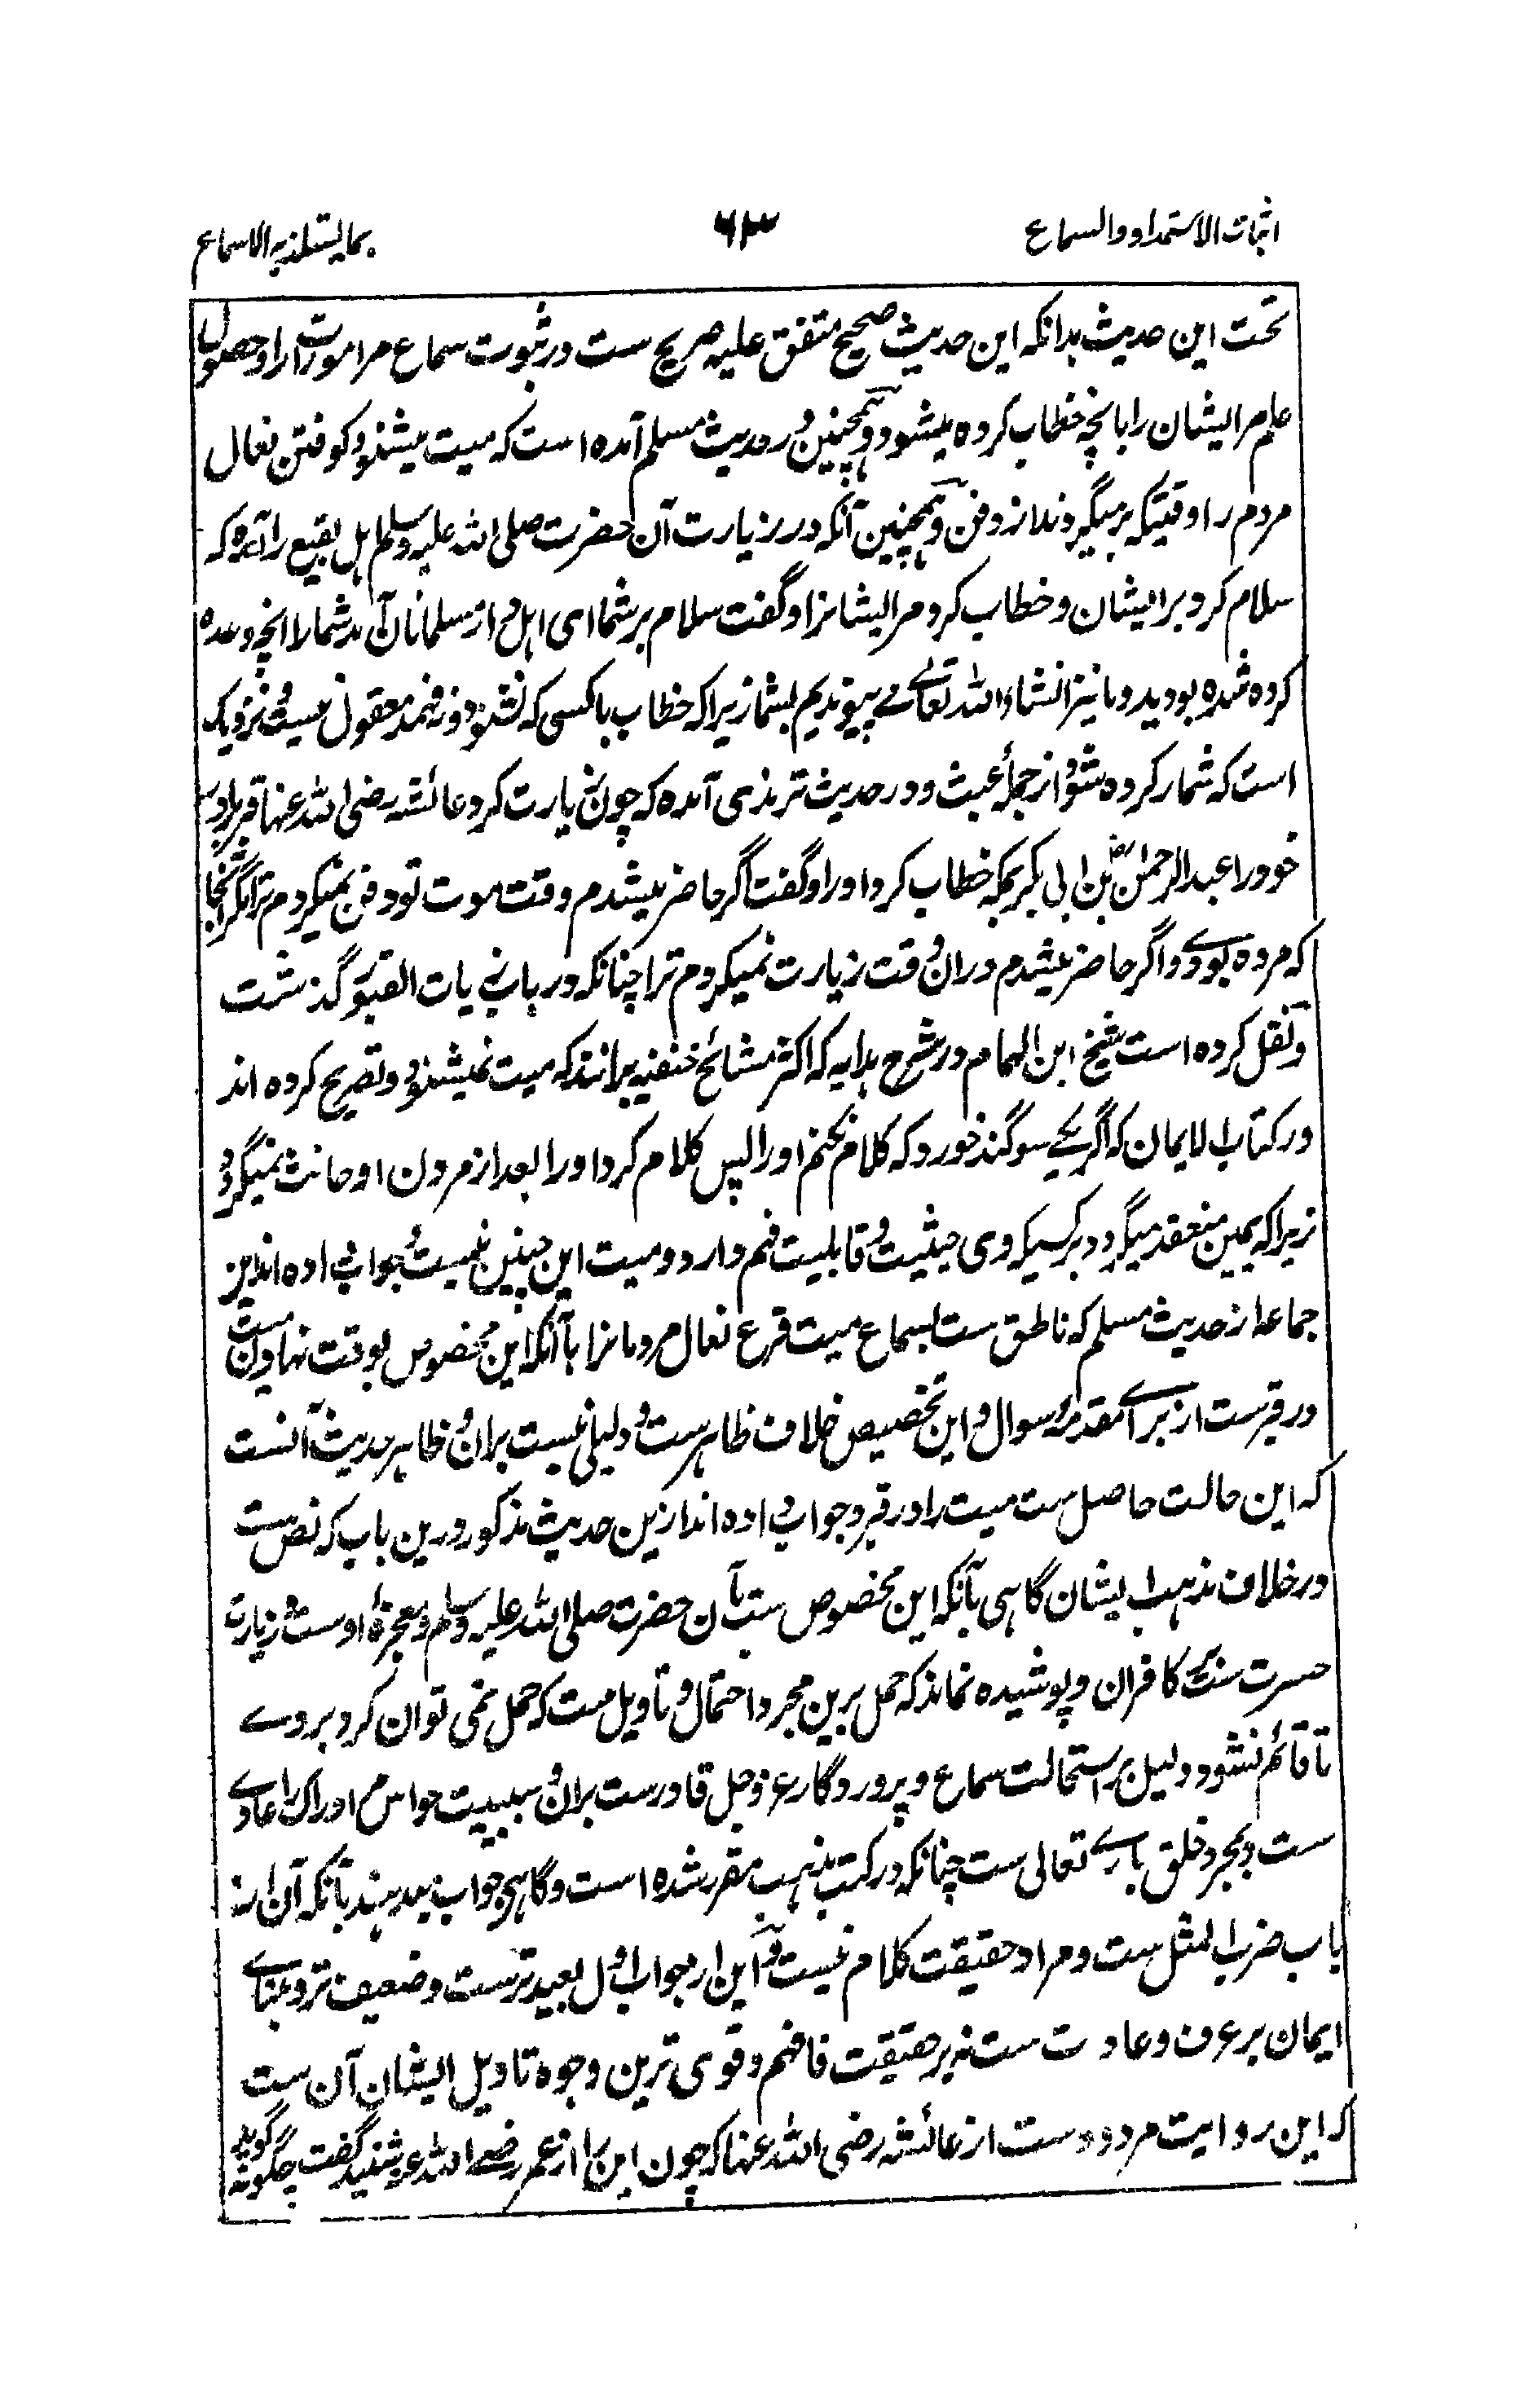 اثبات الاستمداد والسماع ۶۳ بما یستلذ به الاسماع
تحت این حدیث بدانکه این حدیث صحیح متفق علیه صریح ست در ثبوت سماع مر اموات را و حصول
علم مر ایشان را بانچه خطاب کرده میشود و همچنین در حدیث مسلم آمده است که میت میشنود کوفتن نعال
مردم را وقتیکه برمیگردند از دفن و همچنین آنکه در زیارت آن حضرت صلی الله علیه وسلم اهل بقیع را آمده که
سلام کرد بر ایشان و خطاب کرد مر ایشانرا و گفت سلام بر شما ای اهل دار مسلمانان آمد شما را انچه وعده
کرده شده بودید و ما نیز انشاء الله تعالے مے پیوندیم بشما زیرا که خطاب با کسی که نشنود و نه فهمد معقول نیست و نزدیک
است که شمار کرده شود از جملۂ عبث و در حدیث ترمذی آمده که چون زیارت کرد عائشه رضی الله عنها قبر برادر
خود را عبد الرحمن بن ابی بکر بمکه خطاب کرد او را و گفت اگر حاضر میشدم وقت موت تو دفن نمیکردم ترا مگر انجا
که مرده بودے و اگر حاضر میشدم دران وقت زیارت نمیکردم ترا چنانکه در باب زیارت القبور گذشت
و نقل کرده است شیخ ابن الهمام در شرح هدایه که اکثر مشائخ حنفیه برانند که میت نمیشنود و تصریح کرده اند
در کتاب الایمان که اگر یکے سوگند خورد که کلام نکنم او را پس کلام کرد او را بعد از مردن او حانث نمیگردد
زیرا که یمین منعقد میگردد بر کسیکه وی حیثیت و قابلیت فهم دارد و میت این چنین نیست و جواب داده اند این
جماعه از حدیث مسلم که ناطق ست بسماع میت قرع نعال مردمانرا بآنکه این مخصوص بوقت نهادن ست
در قبرست از براے مقدمه سوال و این تخصیص خلاف ظاهرست و دلیلی نیست بران و ظاهر حدیث آنست
که این حالت حاصل ست میت را در قبر و جواب داده اند ازین حدیث مذکور درین باب که نص ست
در خلاف مذهب ایشان گاهی بآنکه این مخصوص ست بآن حضرت صلی الله علیه وسلم و معجزۂ اوست و زیارت
حسرت ست بر کافران و پوشیده نماند که حمل برین مجرد احتمال و تاویل ست که حمل نمی توان کرد بر وے
تا قائم نشود دلیل بر استحالت سماع و پروردگار عز وجل قادرست بران و سببیت حواس مر ادراک را عادی
ست و بمجرد خلق باری تعالی ست چنانکه در کتب مذهب مقرر شده است و گاهی جواب میدهند بآنکه آن از
باب ضرب المثل ست و مراد حقیقت کلام نیست و این از جواب اول بعید ترست و ضعیف تر و بنای
ایمان بر عرف و عادت ست نه بر حقیقت فافهم و قوی ترین وجوه تاویل ایشان آن ست
که این روایت مردودست از عائشه رضی الله عنها که چون این را از عمر رضی الله عنه شنید گفت چگونه گوید